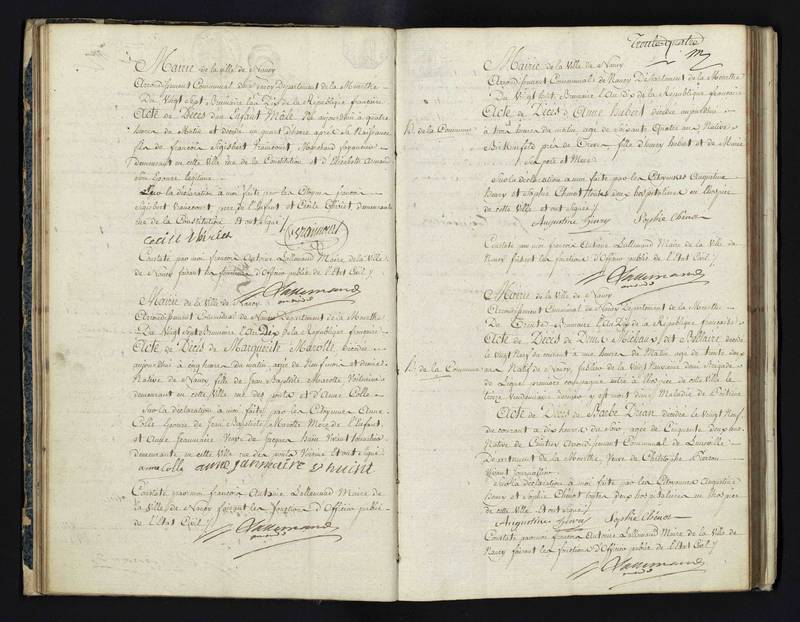 Mairie de la ville de Nancy
Arrondissement Communal de Nancy Département de la Meurthe
Du Vingt Sept Brumaire l'an Dix de la République française
Acte de Décès d'un Enfant Mâle Né aujourd'hui à quatre
heures du Matin et décédé un quart d'heure après sa Naissance
fils de françois Sigisbert francourt Marchand
demeurant en cette Ville rue de la Constitution et d'Elisabeth
son Epouse légitime
Sur la déclaration à moi faite par les Citoyens françois
Sigisbert père de l'Enfant et Cécile demeurante
rue de la Constitution Et ont signé
Cecill
Constaté par moi françois Antoine Lallemand Maire de la Ville
de Nancy faisant les fonctions d'Officier public de l'Etat Civil
Lallemand
Mairie de la Ville de Nancy
Arrondissement Communal de Nancy Département de la Meurthe
Du Vingt Sept Brumaire l'an Dix de la République française
Acte de Décès de Marguerite Marotte Décédée
aujourd'hui à cinq heures du matin, agée de Neuf mois et demie
Native de Nancy fille de Jean Baptiste Marotte Voiturier
demeurant en cette Ville rue des ponts et d'Anne Colle
Sur la déclaration à moi faite par les Citoyennes Anne
Colle Epouse de Jean Baptiste Marotte Mère de l'Enfant
et Anne Veuve de Jacques
demeurante en cette Ville rue des ponts Voisine Et ont signé
anne Colle anne
Constaté par moi françois Antoine Lallemand Maire de
la Ville de Nancy faisant les fonctions d'Officier public
de l'Etat Civil
Lallemand
Trente quatre
Mairie de la Ville de Nancy
Arrondissement Communal de Nancy Département de la Meurthe
Du Vingt huit Brumaire l'An Dix de la République française
Acte de Décès d'Anne hubert décédée aujourd'hui
h. de la Commune
à trois heures du matin, agée de soixante Quatre ans Native
de près de fille d'henry hubert et de Marie
Ses père et Mère
Sur la déclaration à moi faite par les Citoyennes Augustine
henry et Sophie Chenot toutes deux hospitalières en l'hospice
de cette Ville et ont signées
Augustine henry Sophie Chenot
Constaté par moi françois Antoine Lallemand Maire de la Ville de
Nancy faisant les fonctions d'Officier public de l'Etat Civil
Lallemand
Mairie de la Ville de Nancy
Arrondissement Communal de Nancy Département de la Meurthe
Du Trente Brumaire l'An Dix de la République française
Acte de Décès de Denis dit décédé
le Vingt Neuf du courant à une heure du Matin agé de trente deux
h. de la Commune
ans Natif de Nancy, fusilier de la Vingt Neuvième demi Brigade
de Ligne première compagnie entré à l'hospice de cette Ville le
treize Vendémiaire dernier y est mort d'une Maladie de Poitrine
Acte de Décès de Barbe décédée le Vingt Neuf
du courant à dix heures du Soir agée de Cinquante Deux ans
Native de Arrondissement Communal de Lunéville
Département de la Meurthe, Veuve de Christophe
Sur la déclaration à moi faite par les Citoyennes Augustine
henry et Sophie Chenot toutes deux hospitalières en l'hospice
de cette Ville Et ont signé
Augustine henry Sophie Chenot
Constaté par moi françois Antoine Lallemand Maire de la Ville de
Nancy faisant les fonctions d'Officier public de l'Etat Civil
Lallemand